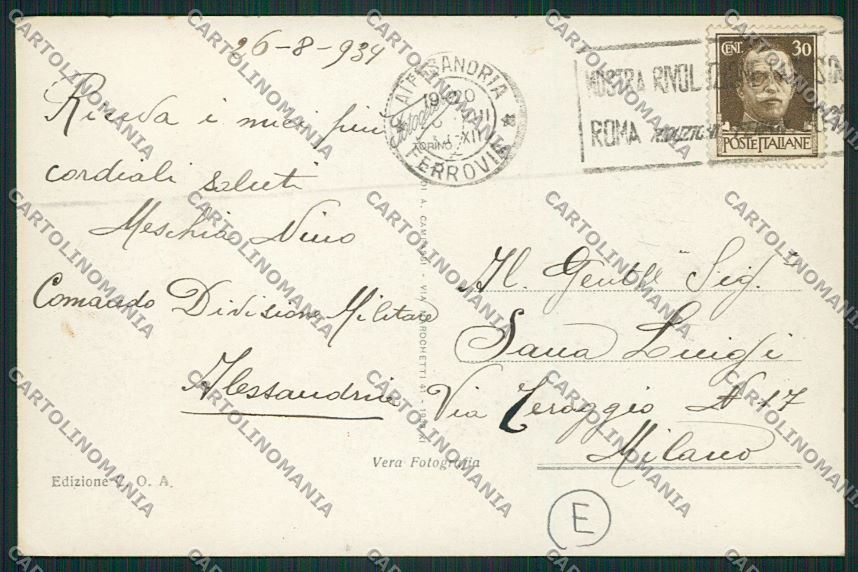 26-8-934
Riceva i miei più
cordiali saluti
Meschia Nino
Comando Divisione Militare
Alessandria
ALESSANDRIA
19-20
XII
TORINO
FERROVIA
MOSTRA RIVOL
ROMA
CENT. 30
POSTE ITALIANE
Al Gentil Sig.
Sana Luigi
Via Ceraggio N 17
Milano
Vera Fotografia
Edizione C. O. A.
E
CARTOLINOMANIA